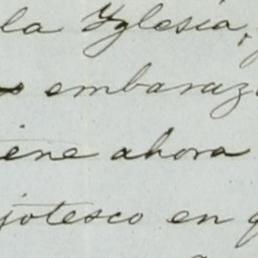 la Yglesia,
embaraz
iene ahora
jotesco en q